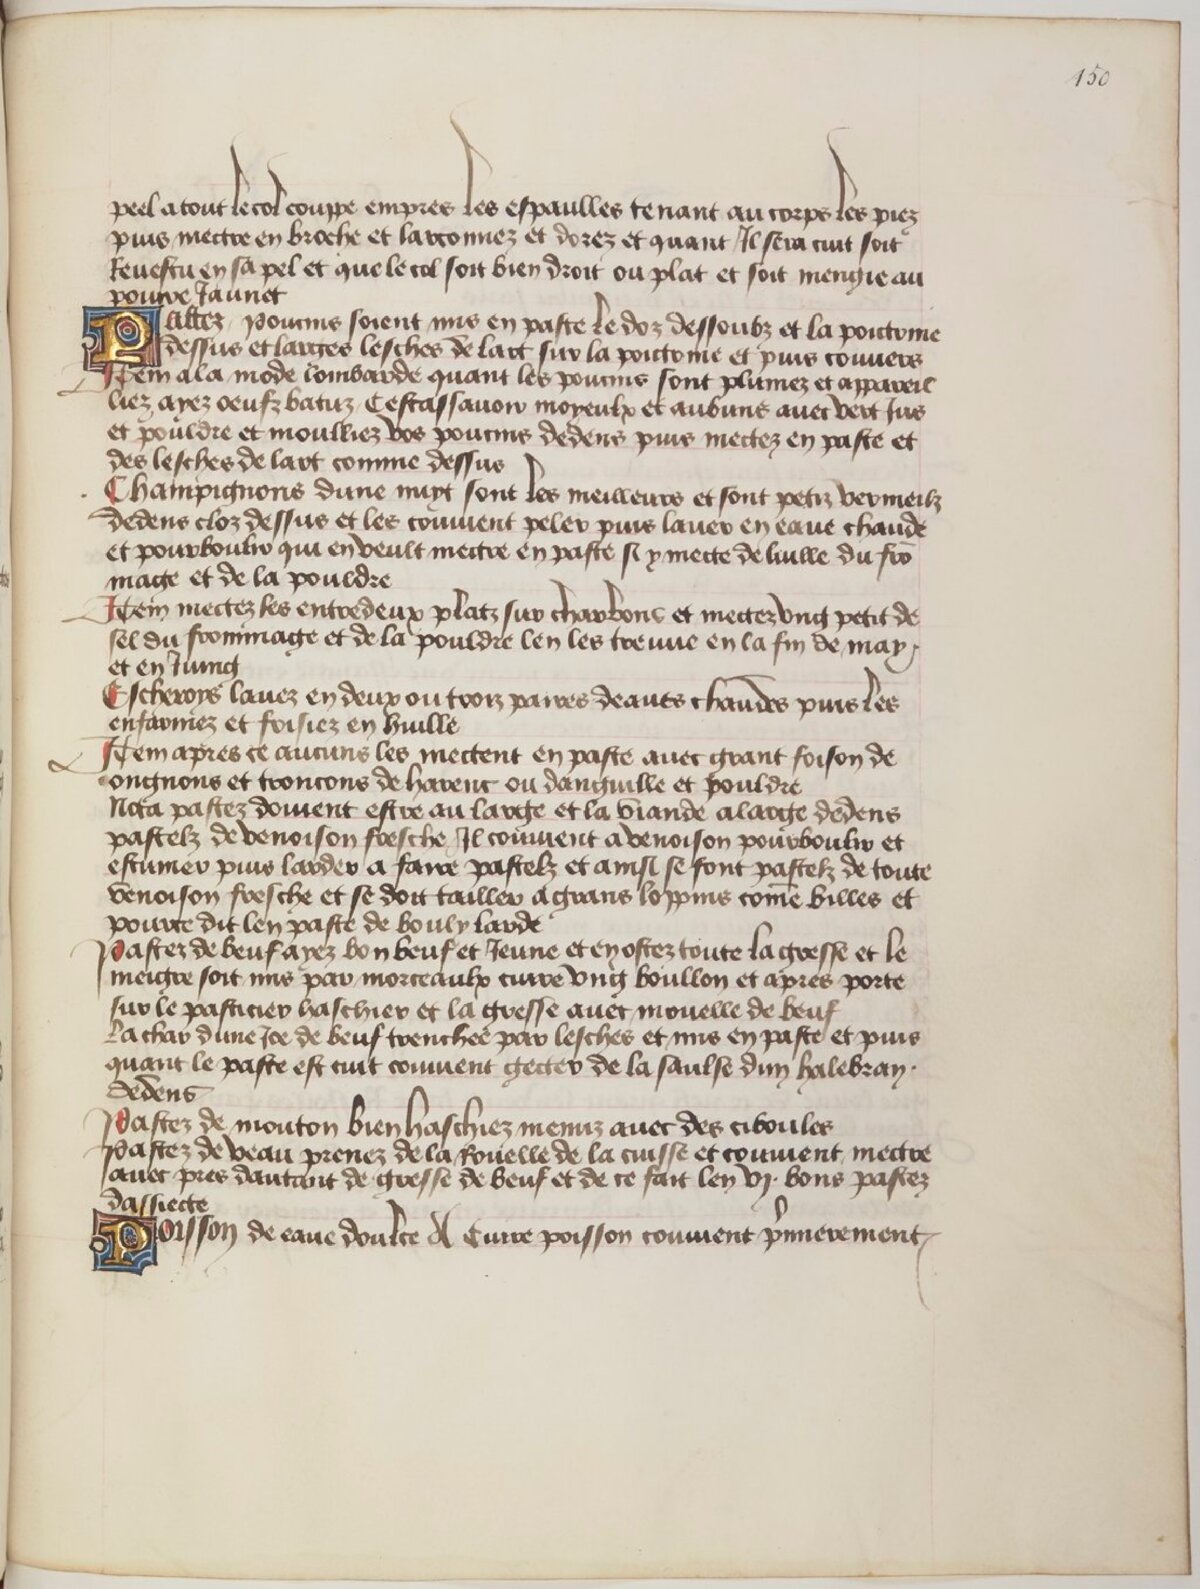 150
peel a tout le col couppe empres les espaulles tenant au corps les piez
puis mectre en broche et lardonnez et dorez et quant Il sera cuit soit
Revestu en sa pel et que le col soit bien droit ou plat et soit mengie au
poivre Jaunet
Pastez Poucins soient mis en paste le doz dessoubz et la poictrine
dessus et larges lesches de lart sur la poictrine et puis couvers
Item a la mode lombarde quant les poucins sont plumez et appareil
liez ayez oeufz batuz Cestassavoir moyeulx et aubuns avec vert Jus
et pouldre et moulliez vos poucins dedens puis mectez en paste et
des lesches de lart comme dessus
Champignons dune nuyt sont les meilleurs et sont petiz vermeilz
dedens cloz dessus et les convient peler puis laver en eaue chaude
et pourboulir qui en veult mectre en paste si y mecte de luille du fro
mage et de la pouldre
Item mectez les entredeux platz sur charbons et mectez ung petit de
sel du frommage et de la pouldre len les treuve en la fin de may
et en Juing
Escheroys lavez en deux ou trois paires deaues chaudes puis les
enfarinez et frisiez en huille
Item apres ce aucuns les mectent en paste avec grant foison de
ongnons et troncons de harenc ou danguille et pouldre
Nota pastez doivent estre au large et la viande a large dedens
pastelz de venoison fresche Il convient a venoison pourboulir et
escumer puis larder a faire pastelz et ainsi se font pastelz de toute
venoison fresche et se doit tailler a grans loppins come billes et
pource dit len paste de bouly larde
Pastez de beuf ayez bon beuf et Jeune et en ostez toute la gresse et le
meigre soit mis par morceaulx cuire ung boullon et apres porte
sur le pasticier haschier et la gresse avec mouelle de beuf
La char dune Joe de beuf trenchee par lesches et mis en paste et puis
quant le paste est cuit convient gecter de la saulse dun halebran
dedens
Pastez de mouton bien haschiez menuz avec des ciboules
Pastez de veau prenez de la Rouelle de la cuisse et convient mectre
avec pres dautant de gresse de beuf et de ce fait len vj bons pastez
dassiecte
Poisson de eaue doulce A Cuire poisson convient pmierement